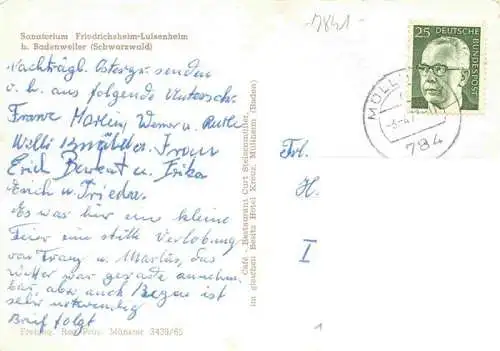 Sanatorium Friedrichsheim-Luisenheim
b. Badenweiler (Schwarzwald)
Nachträgl. Ostergr. senden
u. h. aus folgende Untersch.
Franz Marlies, Werner u.
Willi
Erich u. Erika
Erich u. Frieda.
Es war hier eine kleine
Feier eine stille Verlobung
von Franz u. Marlis, das
Wetter war gerade annehm
bar, aber auch Regen ist
sehr notwendig
Brief folgt
Freigeg. Reg. Präs. Münster 3439/65
Café - Restaurant Curt Steinenmüller,
im gleichen Besitz Hotel Kreuz, Müllheim (Baden)
7841
25
DEUTSCHE
BUNDESPOST
MÜLL
784
Frl.
H.
I
1